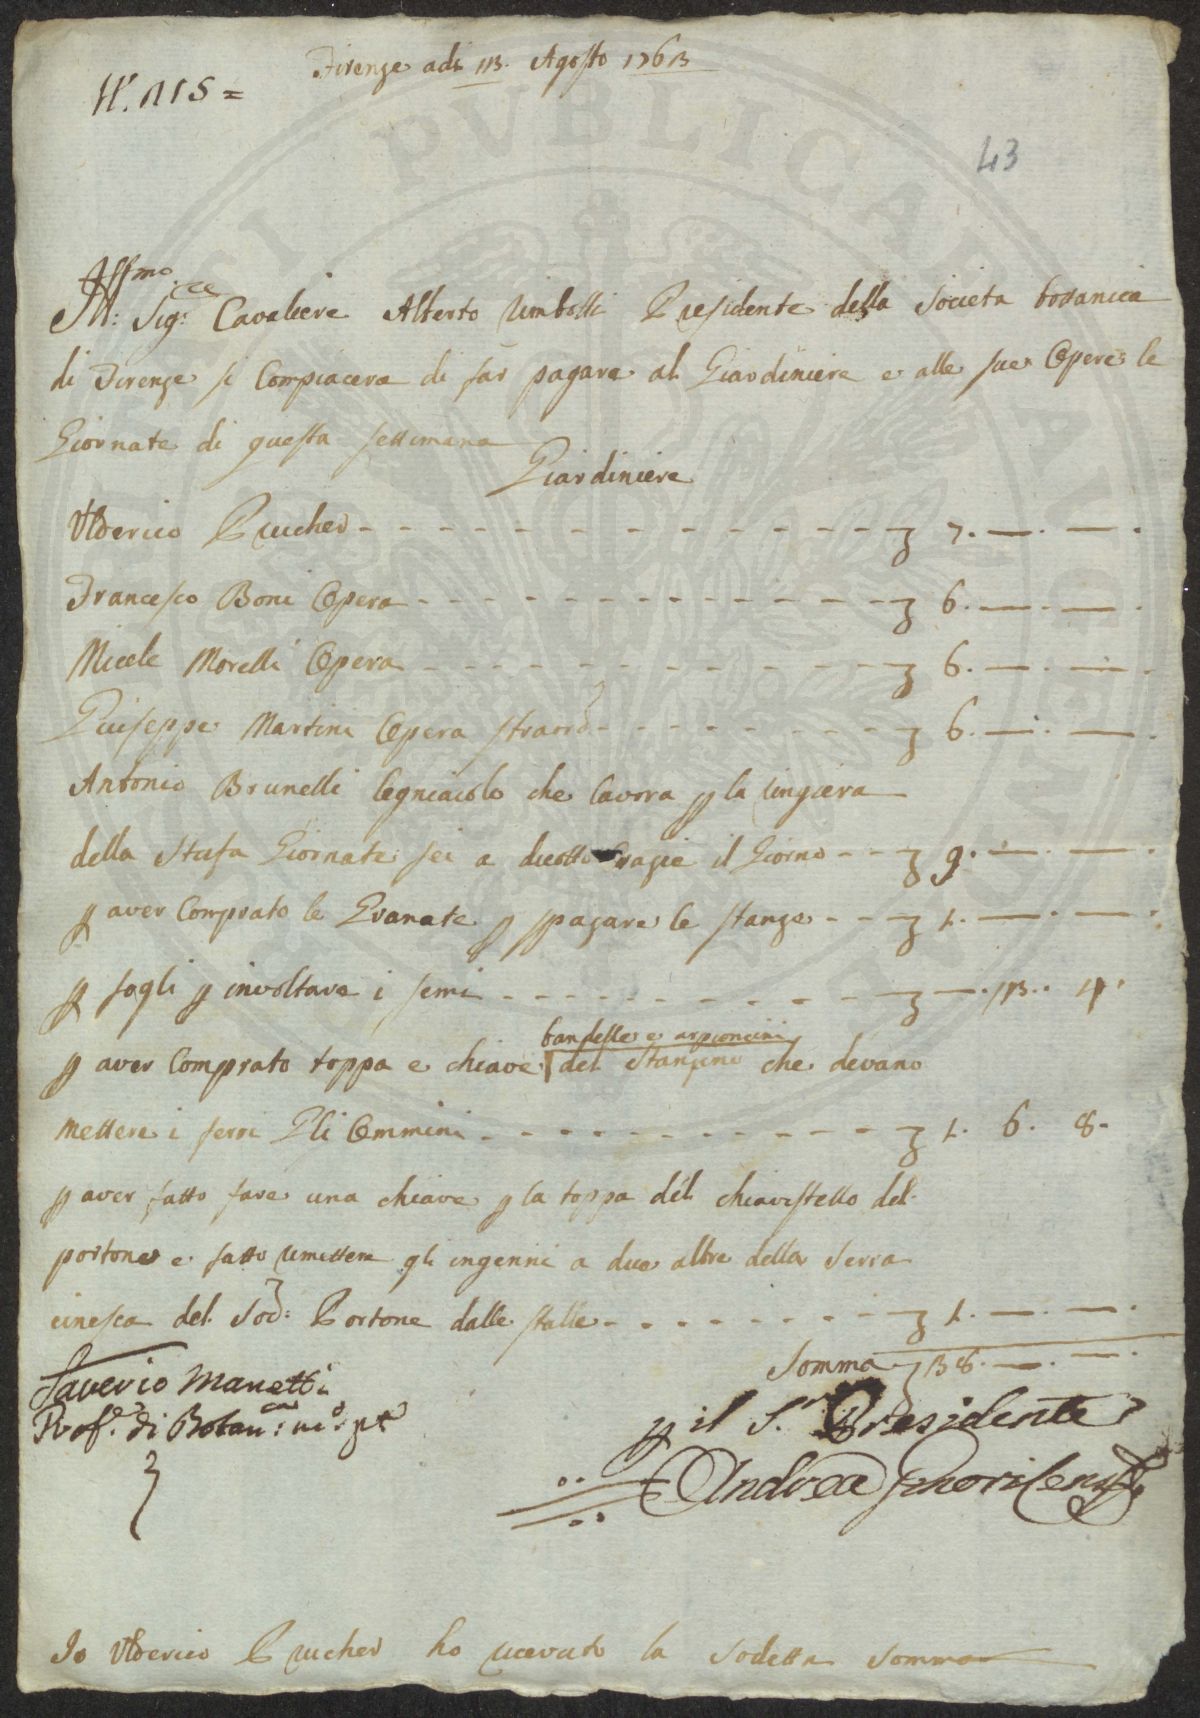 Firenze adi 13. Agosto 1763
N.° 115 =
43
Ill:mo Sig:re Cavaliere Alberto Rimbotti Presidente della Societa bottanica
di Firenze si Compiacera di far pagare al Giardiniere e alle sue Opere le
Giornate di questa settimana
Giardiniere
Ulderico Prucher - - - 7. — . — .
Francesco Boni Opera - - - 6. — . — .
Micele Morelli Opera - - - 6. — . — .
Giuiseppe Martini Opera straord - - - 6. — . — .
Antonio Brunelli legniaiolo che lavora p la
della Stufa Giornate sei a diciotto Crazie il Giorno - - 9. — . — .
p aver Comprato le Granate p spazare le stanze - - - 1. — . — .
p fogli p involtare i semi - - - — . 13. 4.
bandelle e arpioncini
p aver Comprato toppa e chiave del Stanzino che devano
mettere i ferri Gli Ommini - - - 1. 6. 8.
p aver fatto fare una chiave p la toppa del chiavistello del
portone e fatto rimettere gli ingenni a due altre della Serra
cinesca del Sod: Portone dalle stalle - - - 1. — . — .
Somma 38. — . — .
Saverio Manetti
Prof.e di Botan:ca
p il S.r Presidente
Andrea Ginori
Io Ulderico Prucher ho ricevuto la sodetta somma